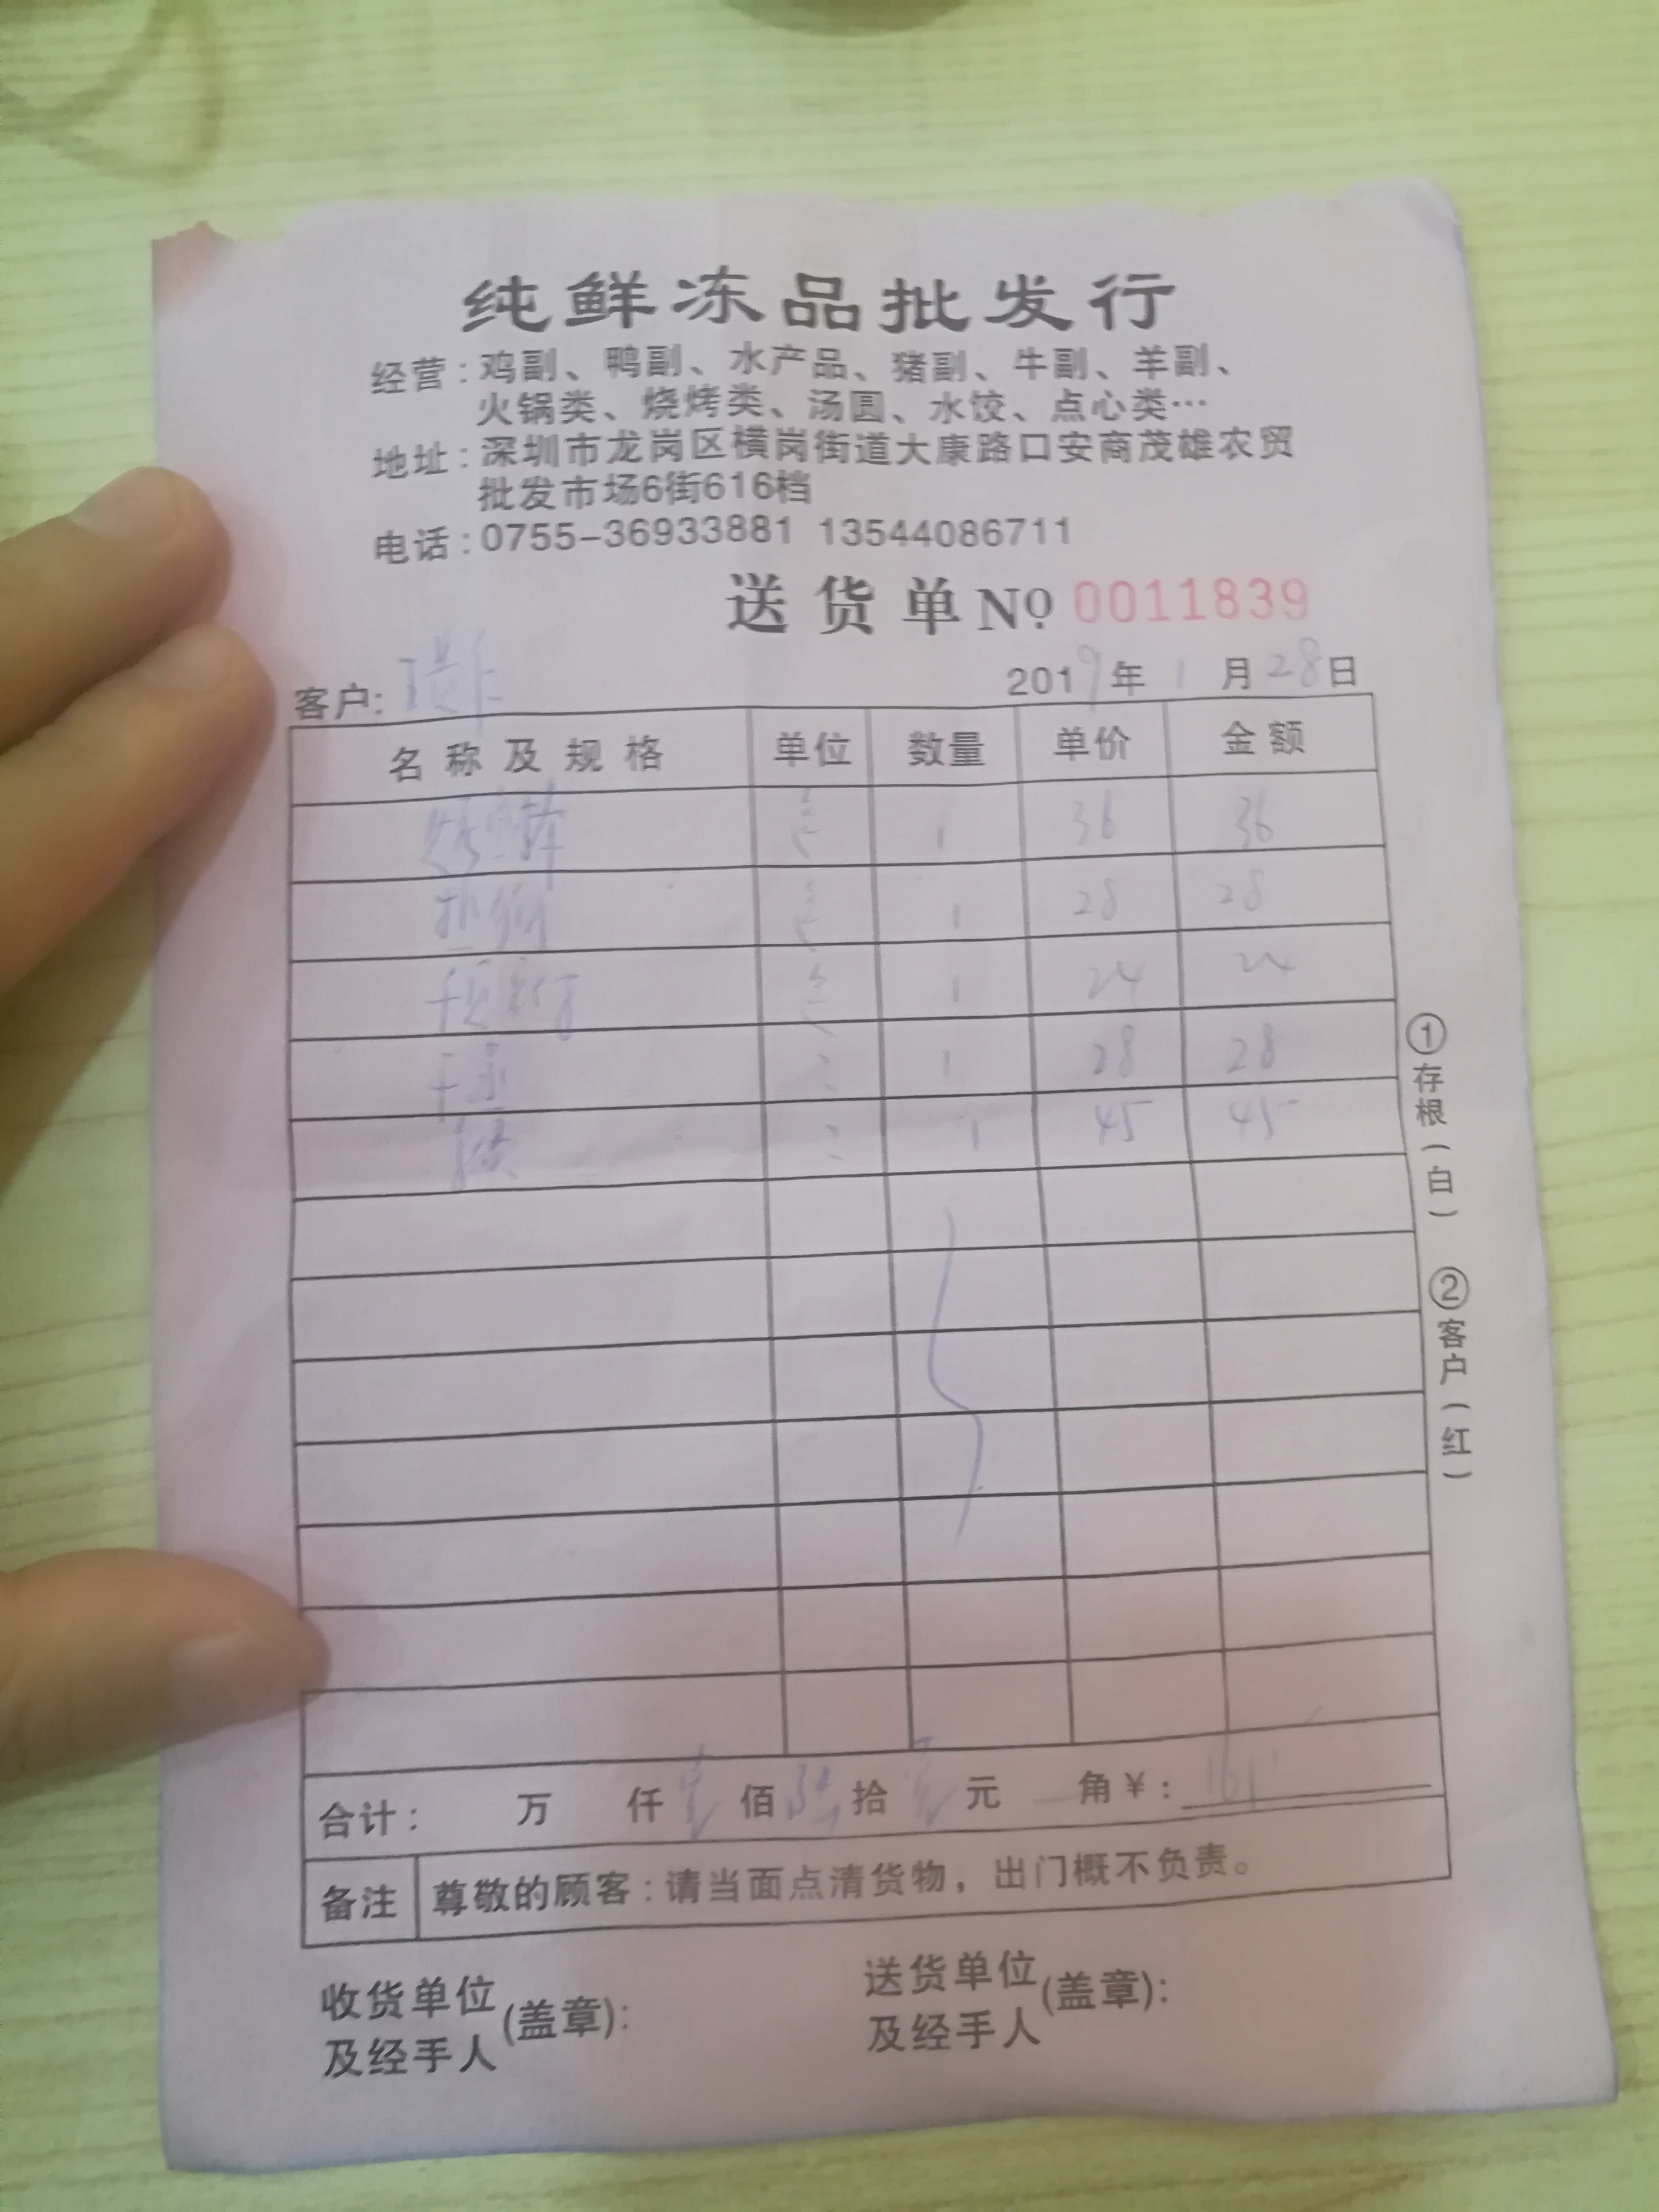 纯鲜冻品批发行
经营:鸡副、鸭副、水产品、猪副、牛副、羊副、
火锅类、烧烤类、汤圆、水饺、点心类…
地址:深圳市龙岗区横岗街道大康路口安商茂雄农贸
批发市场6街616档
电话:0755-36933881 13544086711
送货单 Nº 0011839
客户:
2019年 1 月 28 日
名称及规格 单位 数量 单价 金额
1 36 36
1 28 28
1 24 24
1 28 28
1 45 45
合计: 万 仟 壹 佰 陆 拾 壹 元 角 ¥: 161
备注 尊敬的顾客:请当面点清货物,出门概不负责。
收货单位及经手人(盖章):
送货单位及经手人(盖章):
①存根(白) ②客户(红)